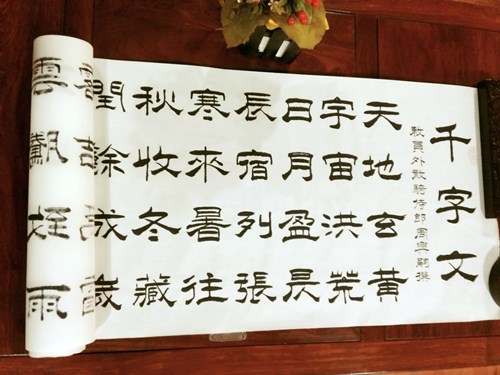 千字文
敕員外散騎侍郎周興嗣撰
天地玄黃
宇宙洪荒
日月盈昃
辰宿列張
寒來暑往
秋收冬藏
閏餘成歲
雲騰致雨